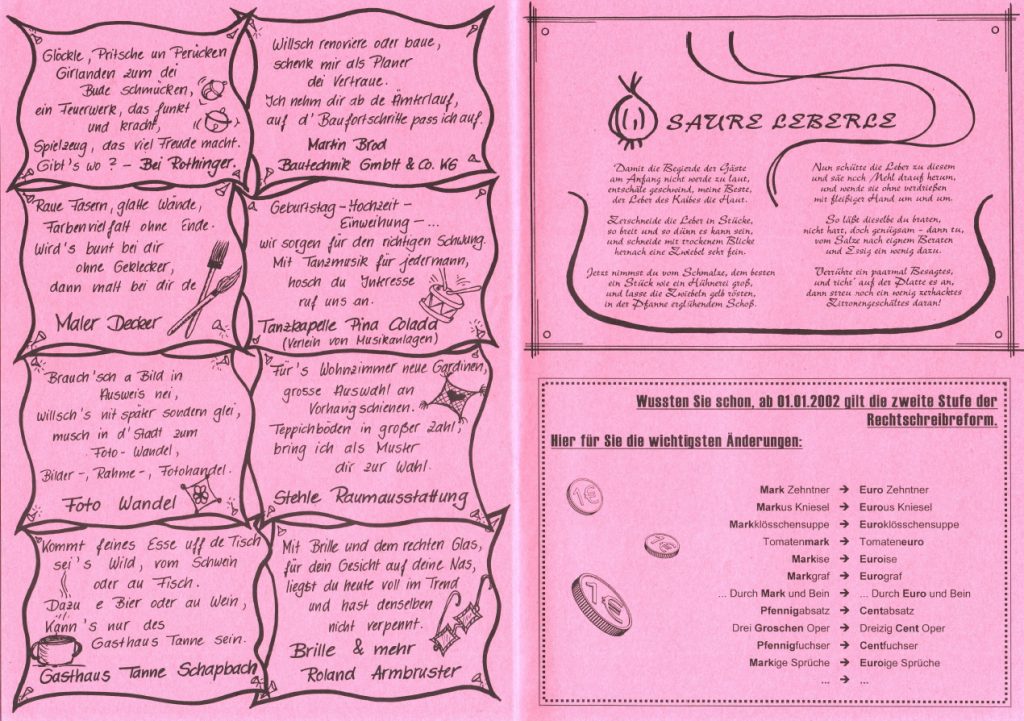 Glöckle, Pritsche un Perücken
Girlanden zum dei
Bude schmücken,
ein Feuerwerk, das funkt
und kracht,
Spielzeug, das viel Freude macht.
Gibt's wo? - Bei Rothinger.
Willsch renoviere oder baue,
schenk mir als Planer
dei Vertraue.
Ich nehm dir ab de Ämterlauf,
auf d' Baufortschritte pass ich auf.
Martin Brod
Bautechnik GmbH & Co. KG
Raue Fasern, glatte Wände,
Farbenvielfalt ohne Ende.
Wird's bunt bei dir
ohne Geklecker,
dann malt bei dir de
Maler Decker
Geburtstag-Hochzeit-
Einweihung-...
wir sorgen für den richtigen Schwung.
Mit Tanzmusik für jedermann,
hosch du Interesse
ruf uns an.
Tanzkapelle Pina Colada
(Verleih von Musikanlagen)
Brauch'sch a Bild in
Ausweis nei,
willsch's nit später sondern glei,
musch in d' Stadt zum
Foto-Wandel,
Bilder-, Rahme-, Fotohandel.
Foto Wandel
Für's Wohnzimmer neue Gardinen,
grosse Auswahl an
Vorhangschienen.
Teppichböden in großer Zahl,
bring ich als Muster
dir zur Wahl.
Stehle Raumausstattung
Kommt feines Esse uff de Tisch
sei's Wild, vom Schwein
oder au Fisch.
Dazu e Bier oder au Wein,
Kann's nur des
Gasthaus Tanne sein.
Gasthaus Tanne Schapbach
Mit Brille und dem rechten Glas,
für dein Gesicht auf deine Nas,
liegst du heute voll im Trend
und hast denselben
nicht verpennt.
Brille & mehr
Roland Armbruster
SAURE LEBERLE
Damit die Begierde der Gäste
am Anfang nicht werde zu laut,
entschäle geschwind, meine Beste,
der Leber des Kalbes die Haut.
Zerschneide die Leber in Stücke,
so breit und so dünn es kann sein,
und schneide mit trockenem Blicke
hernach eine Zwiebel sehr fein.
Jetzt nimmst du vom Schmalze, dem besten
ein Stück wie ein Hühnerei groß,
und lasse die Zwiebeln gelb rösten,
in der Pfanne erglühendem Schoß.
Nun schütte die Leber zu diesem
und säe noch Mehl drauf herum,
und wende sie ohne verdrießen
mit fleißiger Hand um und um.
So läße dieselbe du braten,
nicht hart, doch genügsam - dann tu,
vom Salze nach eignem Beraten
und Essig ein wenig dazu.
Verrühre ein paarmal Besagtes,
und richt' auf der Platte es an,
dann streu noch ein wenig zerhacktes
Zitronengeschältes daran!
Wussten Sie schon, ab 01.01.2002 gilt die zweite Stufe der
Rechtschreibreform.
Hier für Sie die wichtigsten Änderungen:
Mark Zehntner → Euro Zehntner
Markus Kniesel → Eurous Kniesel
Markklösschensuppe → Euroklösschensuppe
Tomatenmark → Tomateneuro
Markise → Euroise
Markgraf → Eurograf
... Durch Mark und Bein → ... Durch Euro und Bein
Pfennigabsatz → Centabsatz
Drei Groschen Oper → Dreizig Cent Oper
Pfennigfuchser → Centfuchser
Markige Sprüche → Euroige Sprüche
... → ...
1€
1€
1€